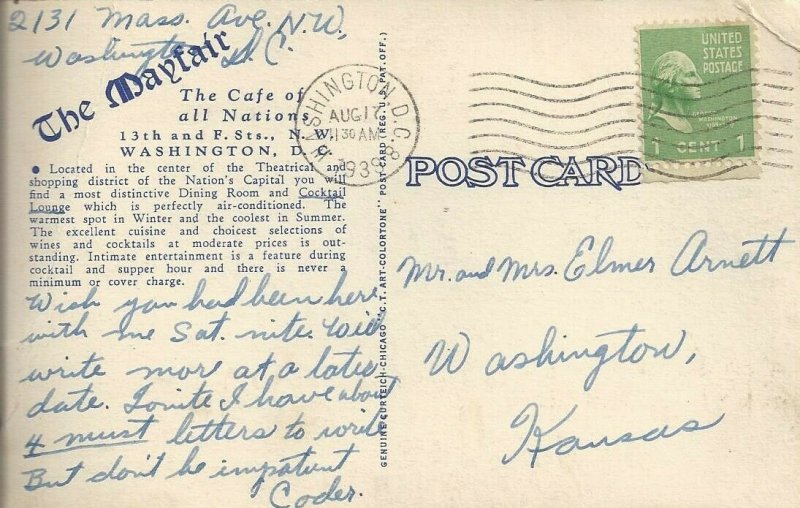 2131 Mass. Ave. N.W.
Washington D.C.
The Mayfair
The Cafe of
all Nations
13th and F. Sts., N. W.
WASHINGTON, D. C.
• Located in the center of the Theatrical and
shopping district of the Nation's Capital you will
find a most distinctive Dining Room and Cocktail
Lounge which is perfectly air-conditioned. The
warmest spot in Winter and the coolest in Summer.
The excellent cuisine and choicest selections of
wines and cocktails at moderate prices is out-
standing. Intimate entertainment is a feature during
cocktail and supper hour and there is never a
minimum or cover charge.
Wish you had been here
with me Sat. nite. Will
write more at a later
date. Tonite I have about
4 must letters to write
But don't be impatient
Coder.
GENUINE CURTEICH-CHICAGO "C.T. ART-COLORTONE" POST CARD (REG. U.S. PAT. OFF.)
WASHINGTON, D.C. 8
AUG 17
11 30 AM
1939
UNITED
STATES
POSTAGE
GEORGE
WASHINGTON
1 CENT 1
POST CARD
Mr. and Mrs. Elmer Arnett
Washington,
Kansas